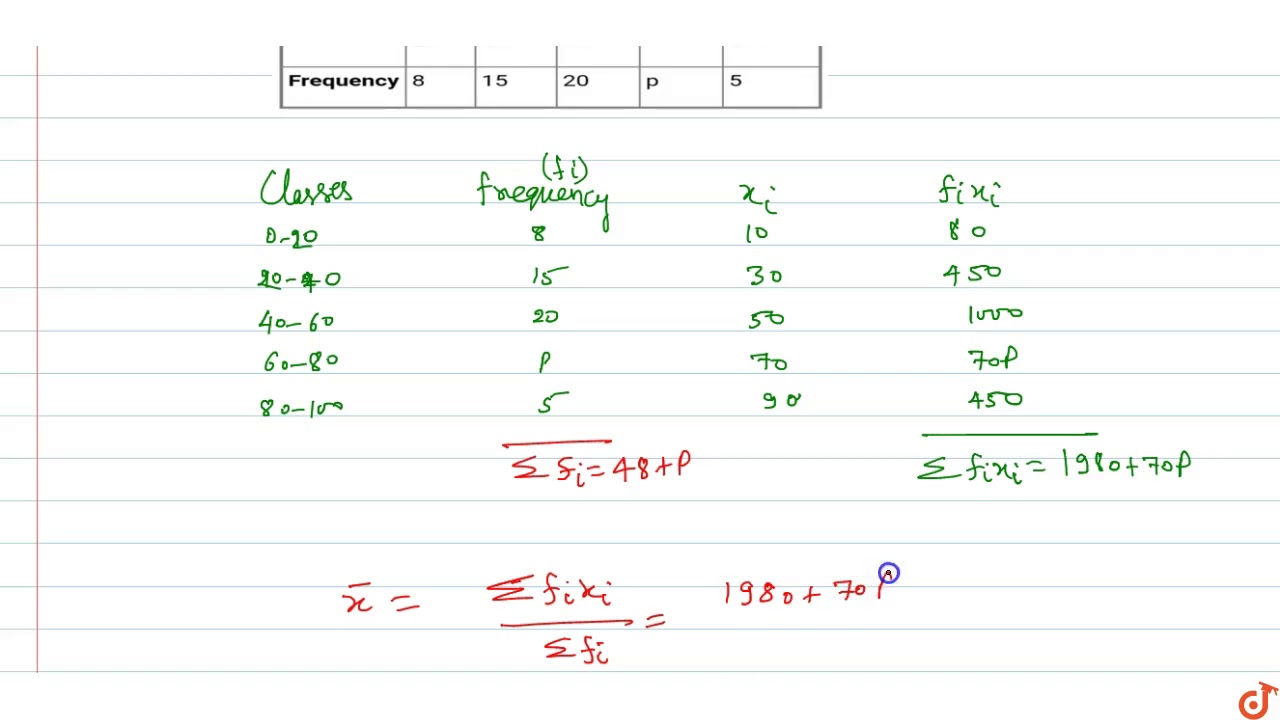 Frequency 8 15 20 p 5
(fi)
Classes frequency xi fixi
0-20 8 10 80
20-40 15 30 450
40-60 20 50 1000
60-80 P 70 70P
80-100 5 90 450
Σfi = 48+P Σfixi = 1980+70P
x̄ = Σfixi / Σfi = 1980+70P